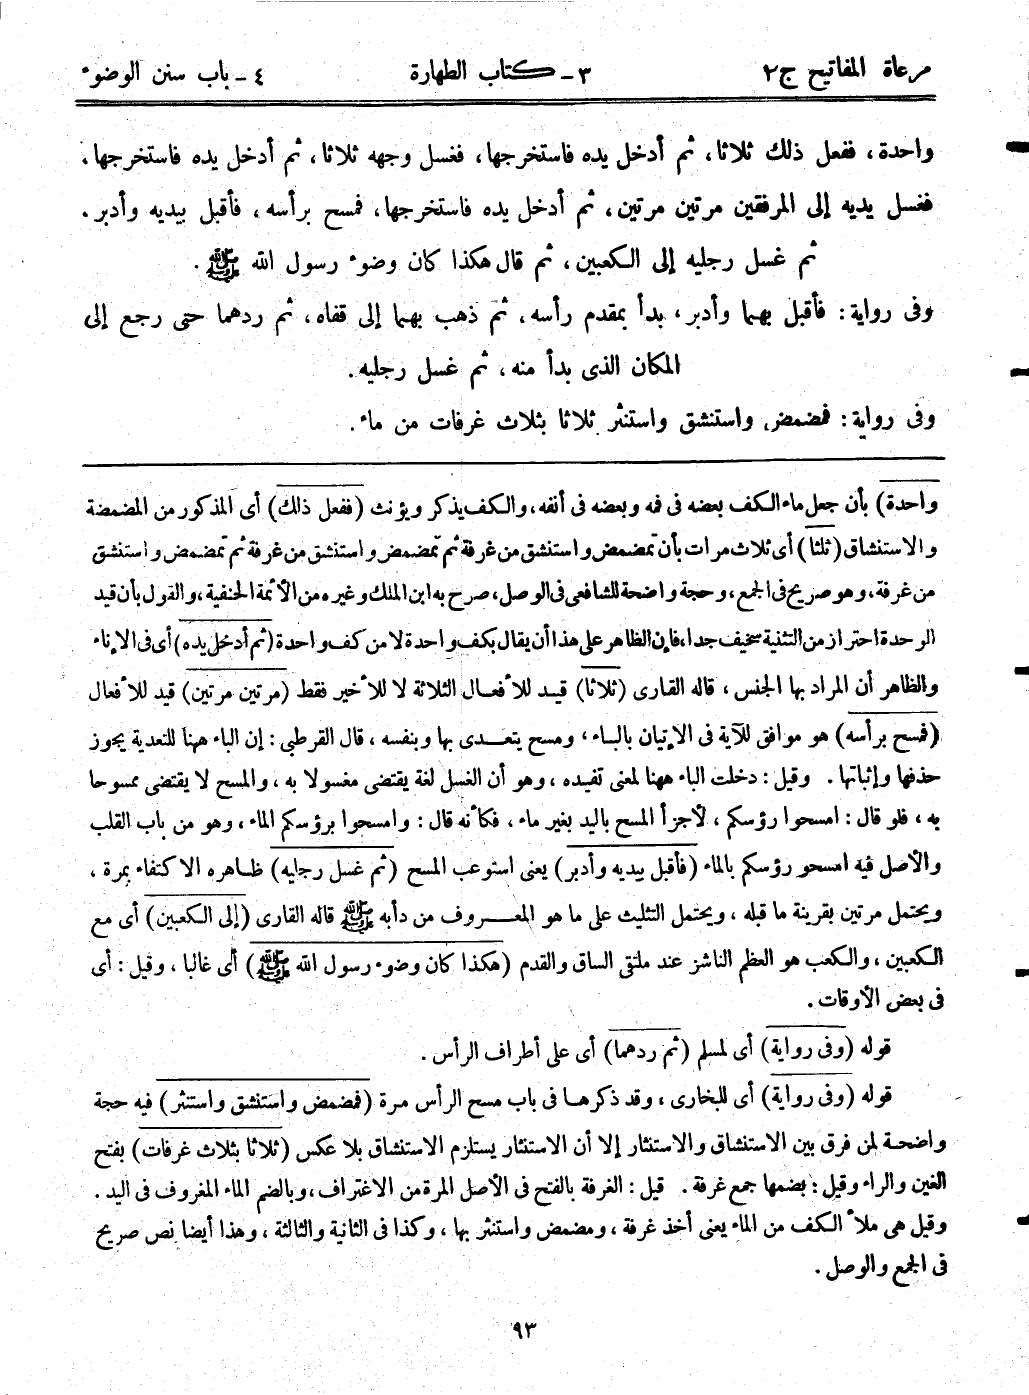 مرعاة المفاتيح ج٢ ٣ - كتاب الطهارة ٤ - باب سنن الوضوء
واحدة، ففعل ذلك ثلاثا، ثم أدخل يده فاستخرجها، فغسل وجهه ثلاثا، ثم أدخل يده فاستخرجها،
فغسل يديه إلى المرفقين مرتين مرتين، ثم أدخل يده فاستخرجها، فمسح برأسه، فأقبل بيديه وأدبر.
ثم غسل رجليه إلى الكعبين، ثم قال هكذا كان وضوء رسول الله ﷺ.
وفى رواية: فأقبل بهما وأدبر، بدأ بمقدم رأسه، ثم ذهب بهما إلى قفاه، ثم ردهما حتى رجع إلى
المكان الذى بدأ منه، ثم غسل رجليه.
وفى رواية: فمضمض واستنشق واستنثر ثلاثا بثلاث غرفات من ماء.
واحدة) بأن جعل ماء الكف بعضه فى فمه وبعضه فى أنفه، والكف يذكر ويؤنث (ففعل ذلك) أى المذكور من المضمضة
والاستنشاق (ثلثا) أى ثلاث مرات بأن تمضمض واستنشق من غرفة ثم تمضمض واستنشق من غرفة ثم تمضمض واستنشق
من غرفة، وهو صريح فى الجمع، وحجة واضحة للشافعى فى الوصل، صرح به ابن الملك وغيره من الأئمة الحنفية، والقول بأن قيد
الوحدة احتراز من التثنية سخيف جدا، فإن الظاهر على هذا أن يقال بكف واحدة لا من كف واحدة (ثم أدخل يده) أى فى الإناء
والظاهر أن المراد بها الجنس، قاله القارى (ثلاثا) قيد للأفعال الثلاثة لا للأخير فقط (مرتين مرتين) قيد للأفعال
(فمسح برأسه) هو موافق للآية فى الإتيان بالباء، ومسح يتعدى بها وبنفسه، قال القرطبى: إن الباء ههنا للتعدية يجوز
حذفها وإثباتها. وقيل: دخلت الباء ههنا لمعنى تفيده، وهو أن الغسل لغة يقتضى مغسولا به، والمسح لا يقتضى ممسوحا
به، فلو قال: امسحوا رؤسكم، لأجزأ المسح باليد بغير ماء، فكأنه قال: وامسحوا برؤسكم الماء، وهو من باب القلب
والأصل فيه امسحو رؤسكم بالماء (فأقبل بيديه وأدبر) يعنى استوعب المسح (ثم غسل رجليه) ظاهره الاكتفاء بمرة،
ويحتمل مرتين بقرينة ما قبله، ويحتمل التثليث على ما هو المعروف من دأبه ﷺ قاله القارى (إلى الكعبين) أى مع
الكعبين، والكعب هو العظم الناشز عند ملتقى الساق والقدم (هكذا كان وضوء رسول الله ﷺ) أى غالبا، وقيل: أى
فى بعض الأوقات.
قوله (وفى رواية) أى لمسلم (ثم ردهما) أى على أطراف الرأس.
قوله (وفى رواية) أى للبخارى، وقد ذكرها فى باب مسح الرأس مرة (فمضمض واستنشق واستنثر) فيه حجة
واضحة لمن فرق بين الاستنشاق والاستنثار إلا أن الاستنثار يستلزم الاستنشاق بلا عكس (ثلاثا بثلاث غرفات) بفتح
الغين والراء وقيل: بضمها جمع غرفة. قيل: الغرفة بالفتح فى الأصل المرة من الاغتراف، وبالضم الماء المغروف فى اليد.
وقيل هى ملأ الكف من الماء يعنى أخذ غرفة، ومضمض واستنثر بها، وكذا فى الثانية والثالثة، وهذا أيضا نص صريح
فى الجمع والوصل.
٩٣